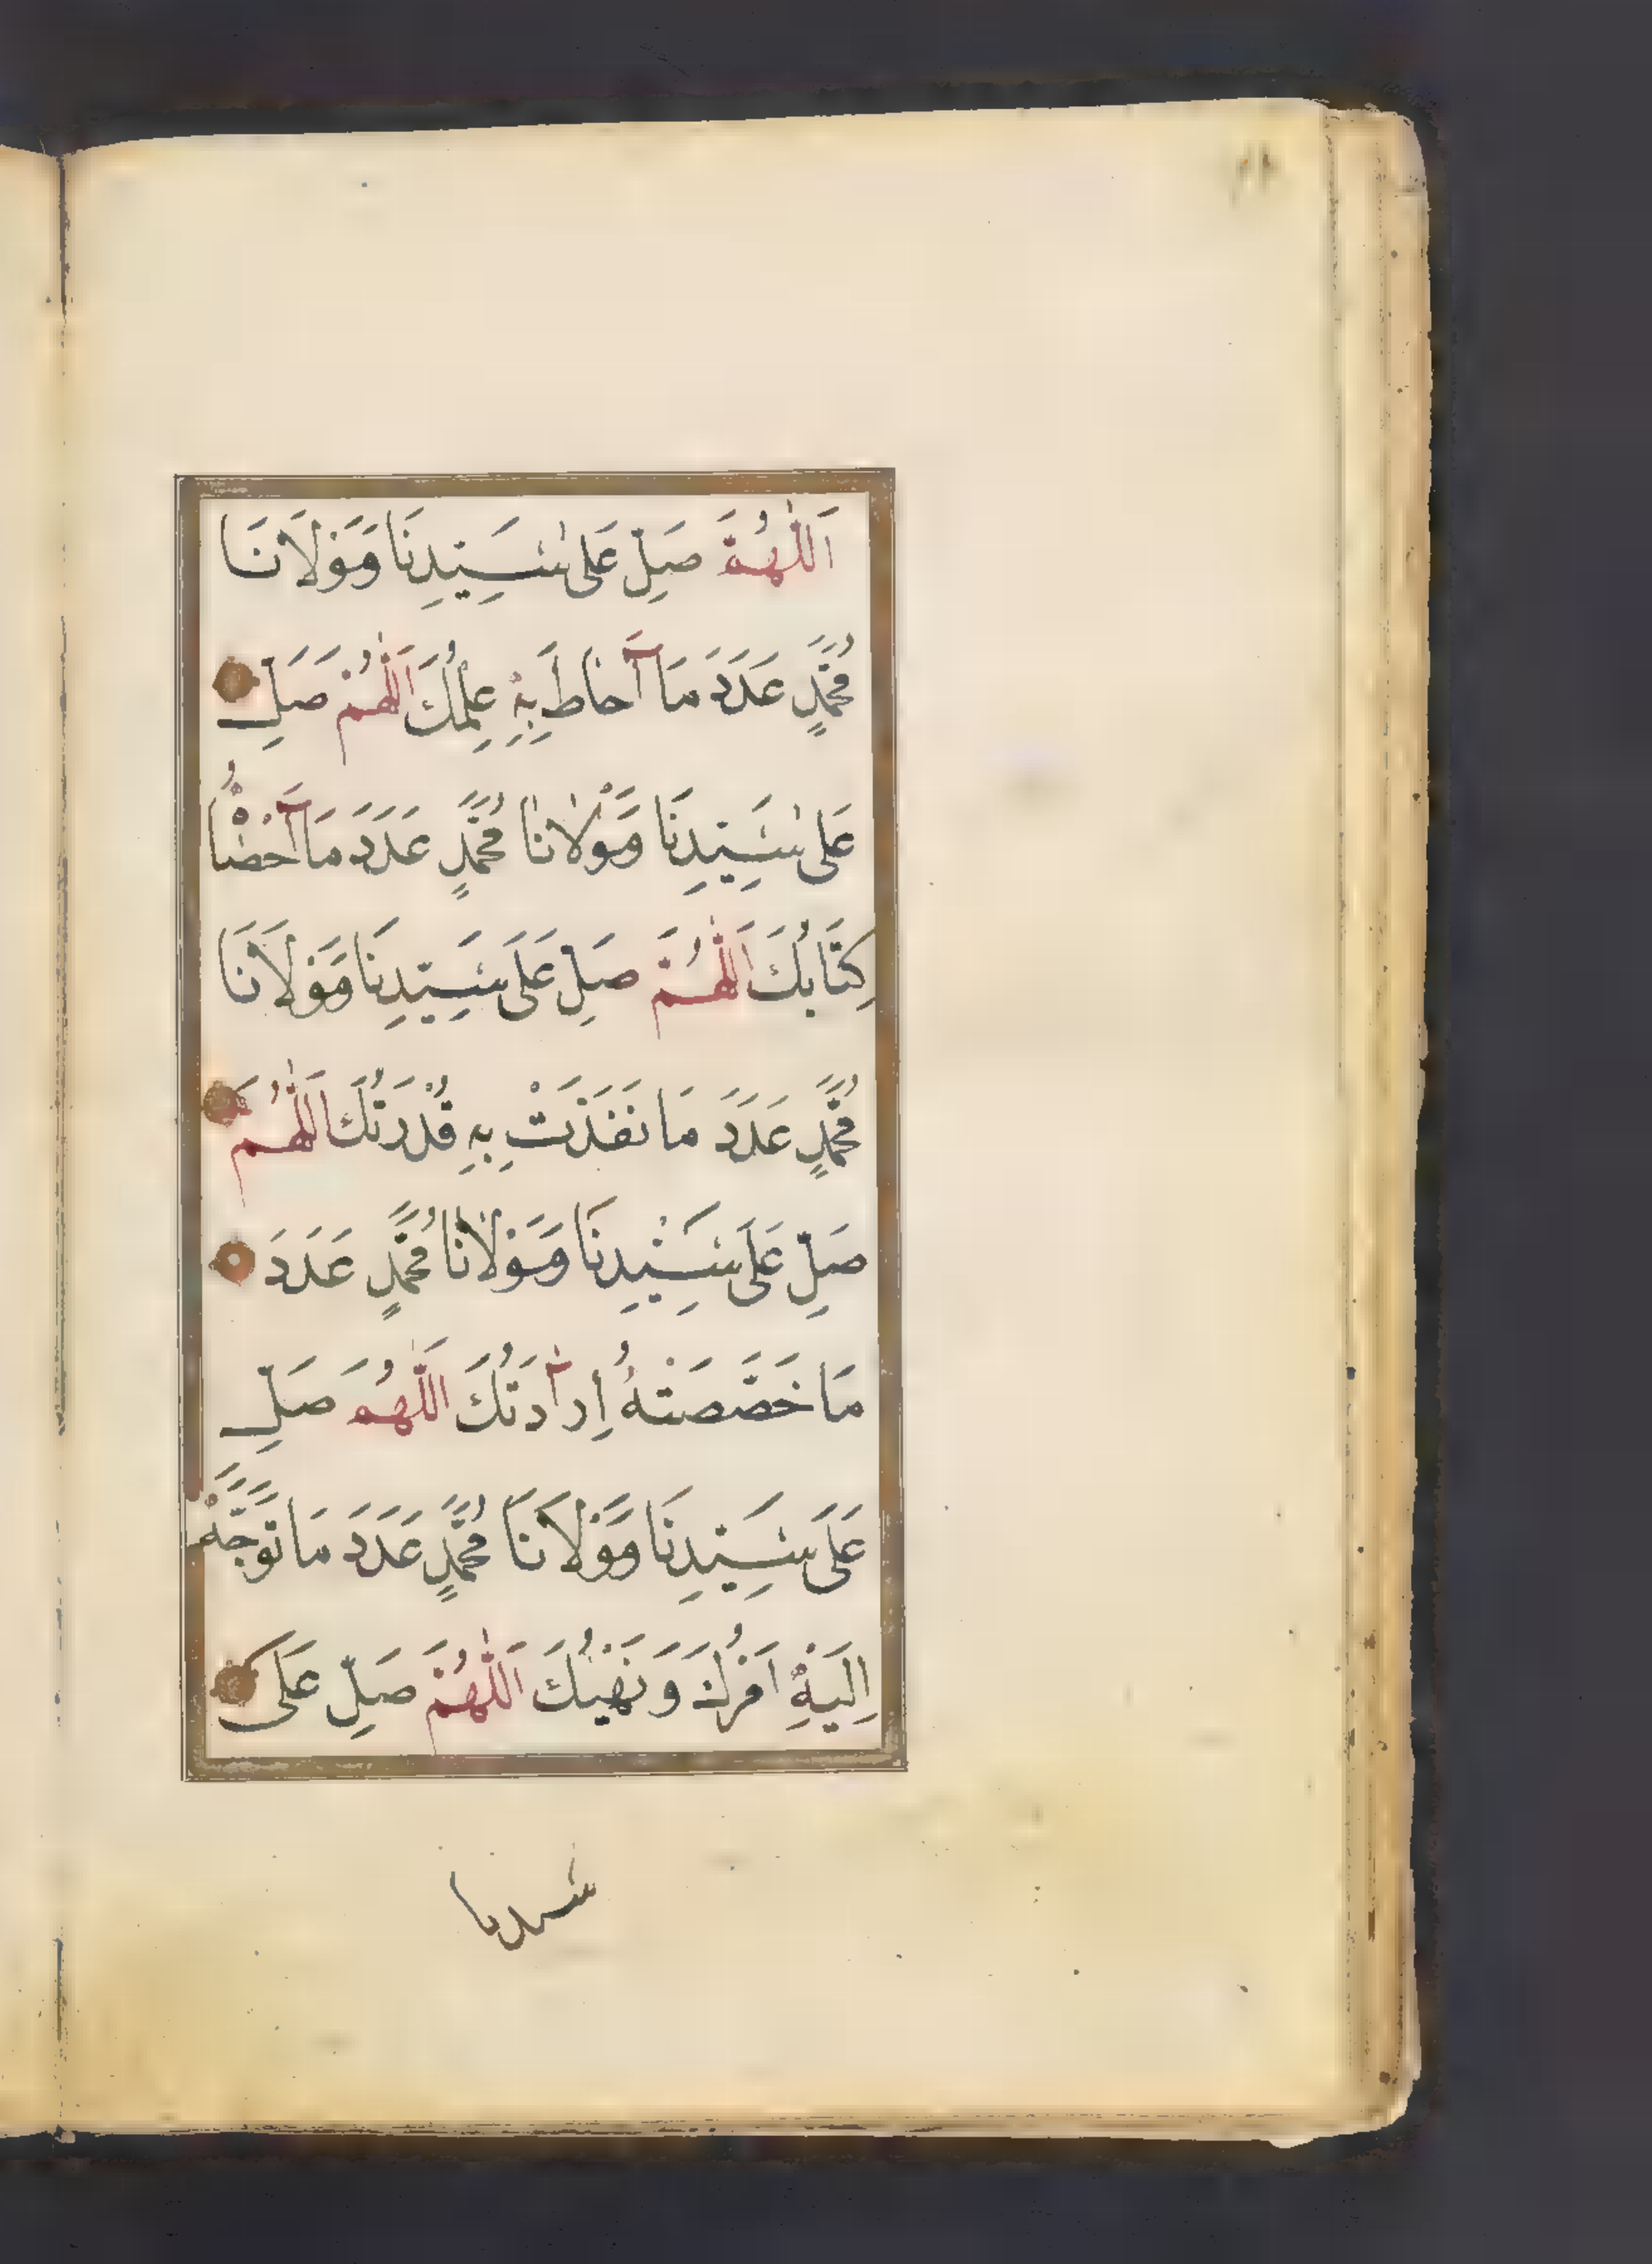 اَللّٰهُمَّ صَلِّ عَلٰى سَيِّدِنَا وَمَوْلَانَا
مُحَمَّدٍ عَدَدَ مَا اَحَاطَ بِهِ عِلْمُكَ اَللّٰهُمَّ صَلِّ
عَلٰى سَيِّدِنَا وَمَوْلَانَا مُحَمَّدٍ عَدَدَ مَا اَحْصَاهُ
كِتَابُكَ اَللّٰهُمَّ صَلِّ عَلَى سَيِّدِنَا وَمَوْلَانَا
مُحَمَّدٍ عَدَدَ مَا نَفَذَتْ بِهِ قُدْرَتُكَ اَللّٰهُمَّ
صَلِّ عَلَى سَيِّدِنَا وَمَوْلَانَا مُحَمَّدٍ عَدَدَ
مَا خَصَّصَتْهُ اِرَادَتُكَ اَللّٰهُمَّ صَلِّ
عَلَى سَيِّدِنَا وَمَوْلَانَا مُحَمَّدٍ عَدَدَ مَا تَوَجَّهَ
اِلَيْهِ اَمْرُكَ وَنَهْيُكَ اَللّٰهُمَّ صَلِّ عَلَى
سيدنا